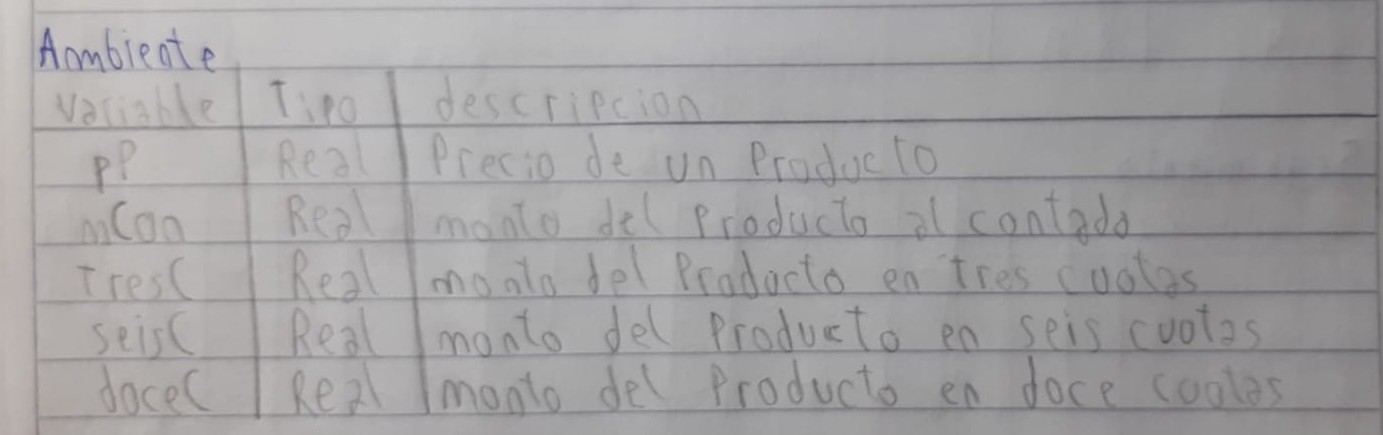 Ambiente
Variable Tipo descripcion
pP Real Precio de un Producto
mCon Real monto del Producto al contado
TresC Real monto del Producto en tres cuotas
seisC Real monto del Producto en seis cuotas
doceC Real monto del Producto en doce cuotas